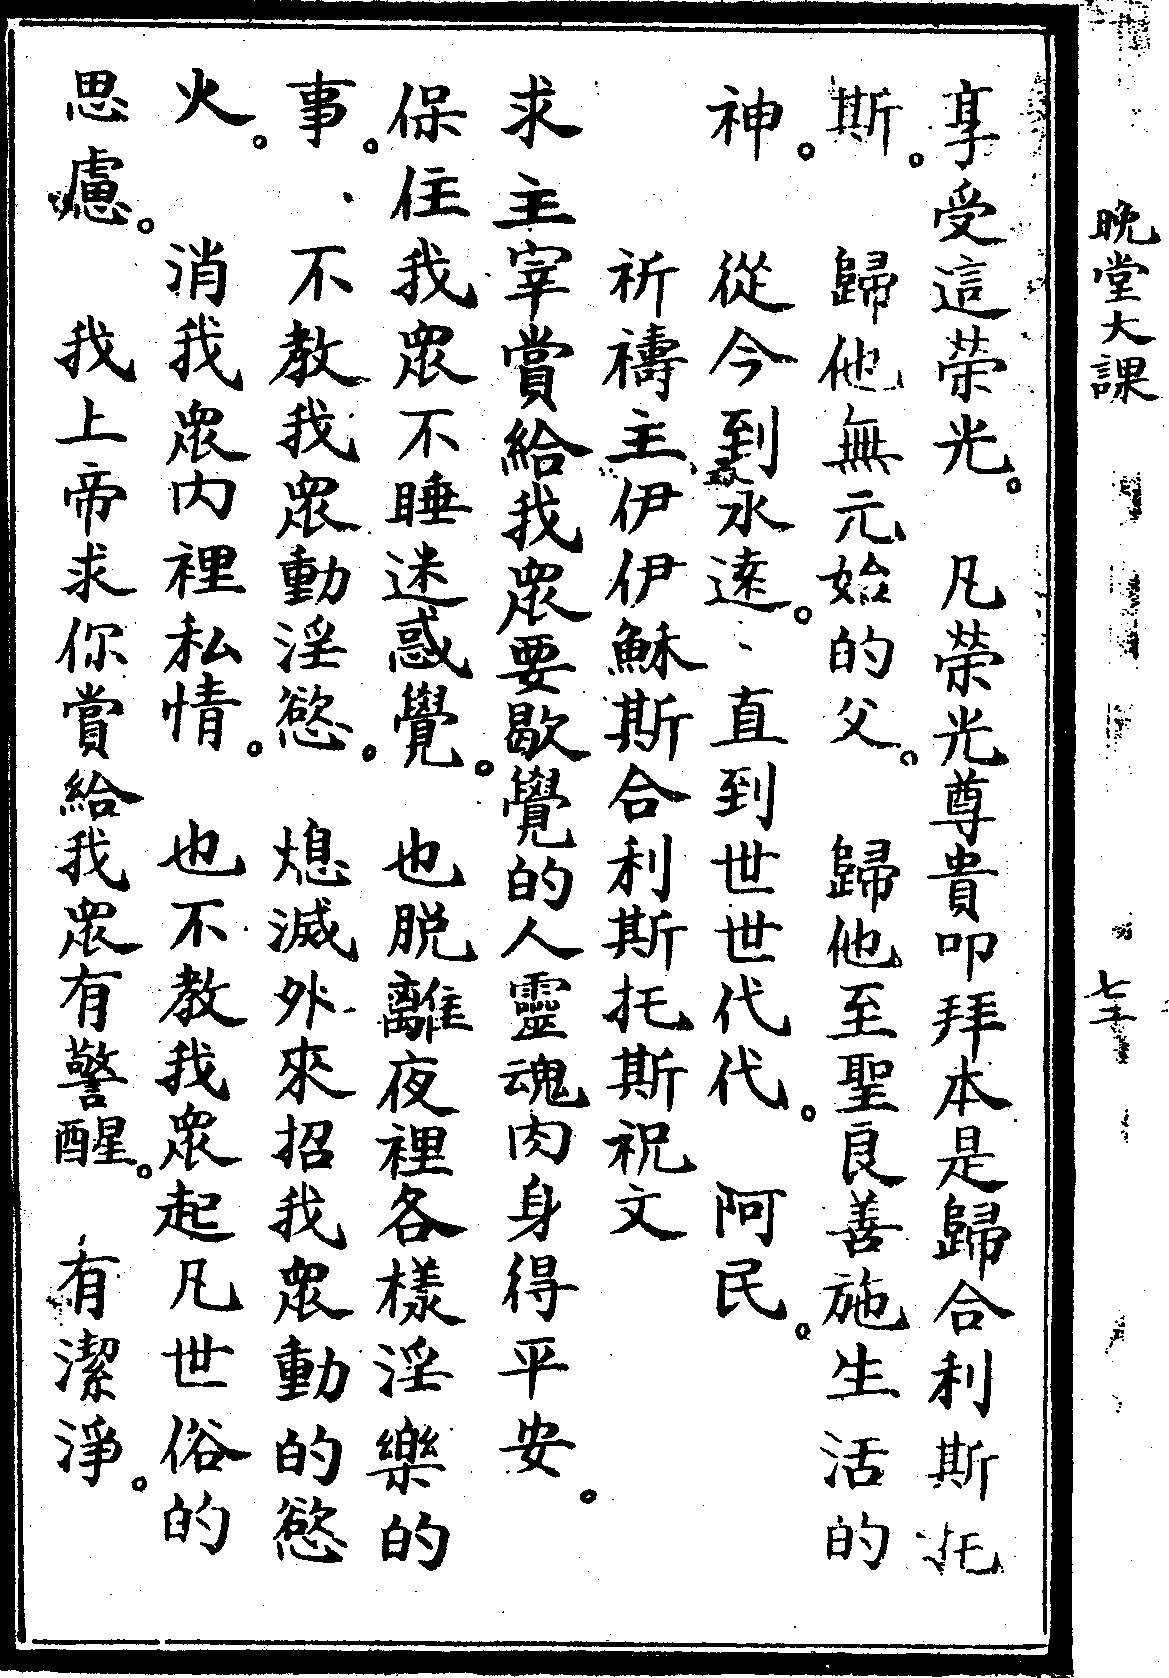 晚堂大課
七十
享受這榮光。凡榮光尊貴叩拜本是歸合利斯托
斯。歸他無元始的父。歸他至聖良善施生活的
神。從今到永遠。直到世世代代。阿民。
祈禱主伊伊穌斯合利斯托斯祝文
求主宰賞給我眾要歇覺的人靈魂肉身得平安。
保住我眾不睡迷惑覺。也脫離夜裡各樣淫樂的
事。不教我眾動淫慾。熄滅外來招我眾動的慾
火。消我眾內裡私情。也不教我眾起凡世俗的
思慮。我上帝求你賞給我眾有警醒。有潔淨。